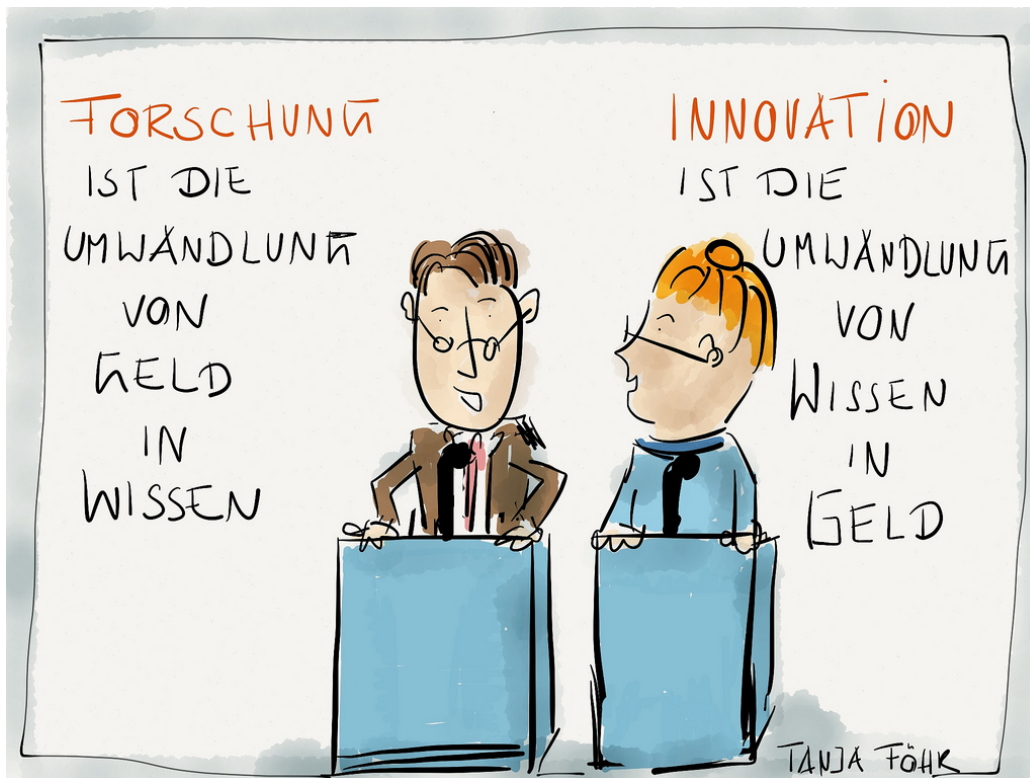 FORSCHUNG
IST DIE
UMWANDLUNG
VON
GELD
IN
WISSEN
INNOVATiON
IST DIE
UMWANDLUNG
VON
WISSEN
IN
GELD
TANJA FÖHR